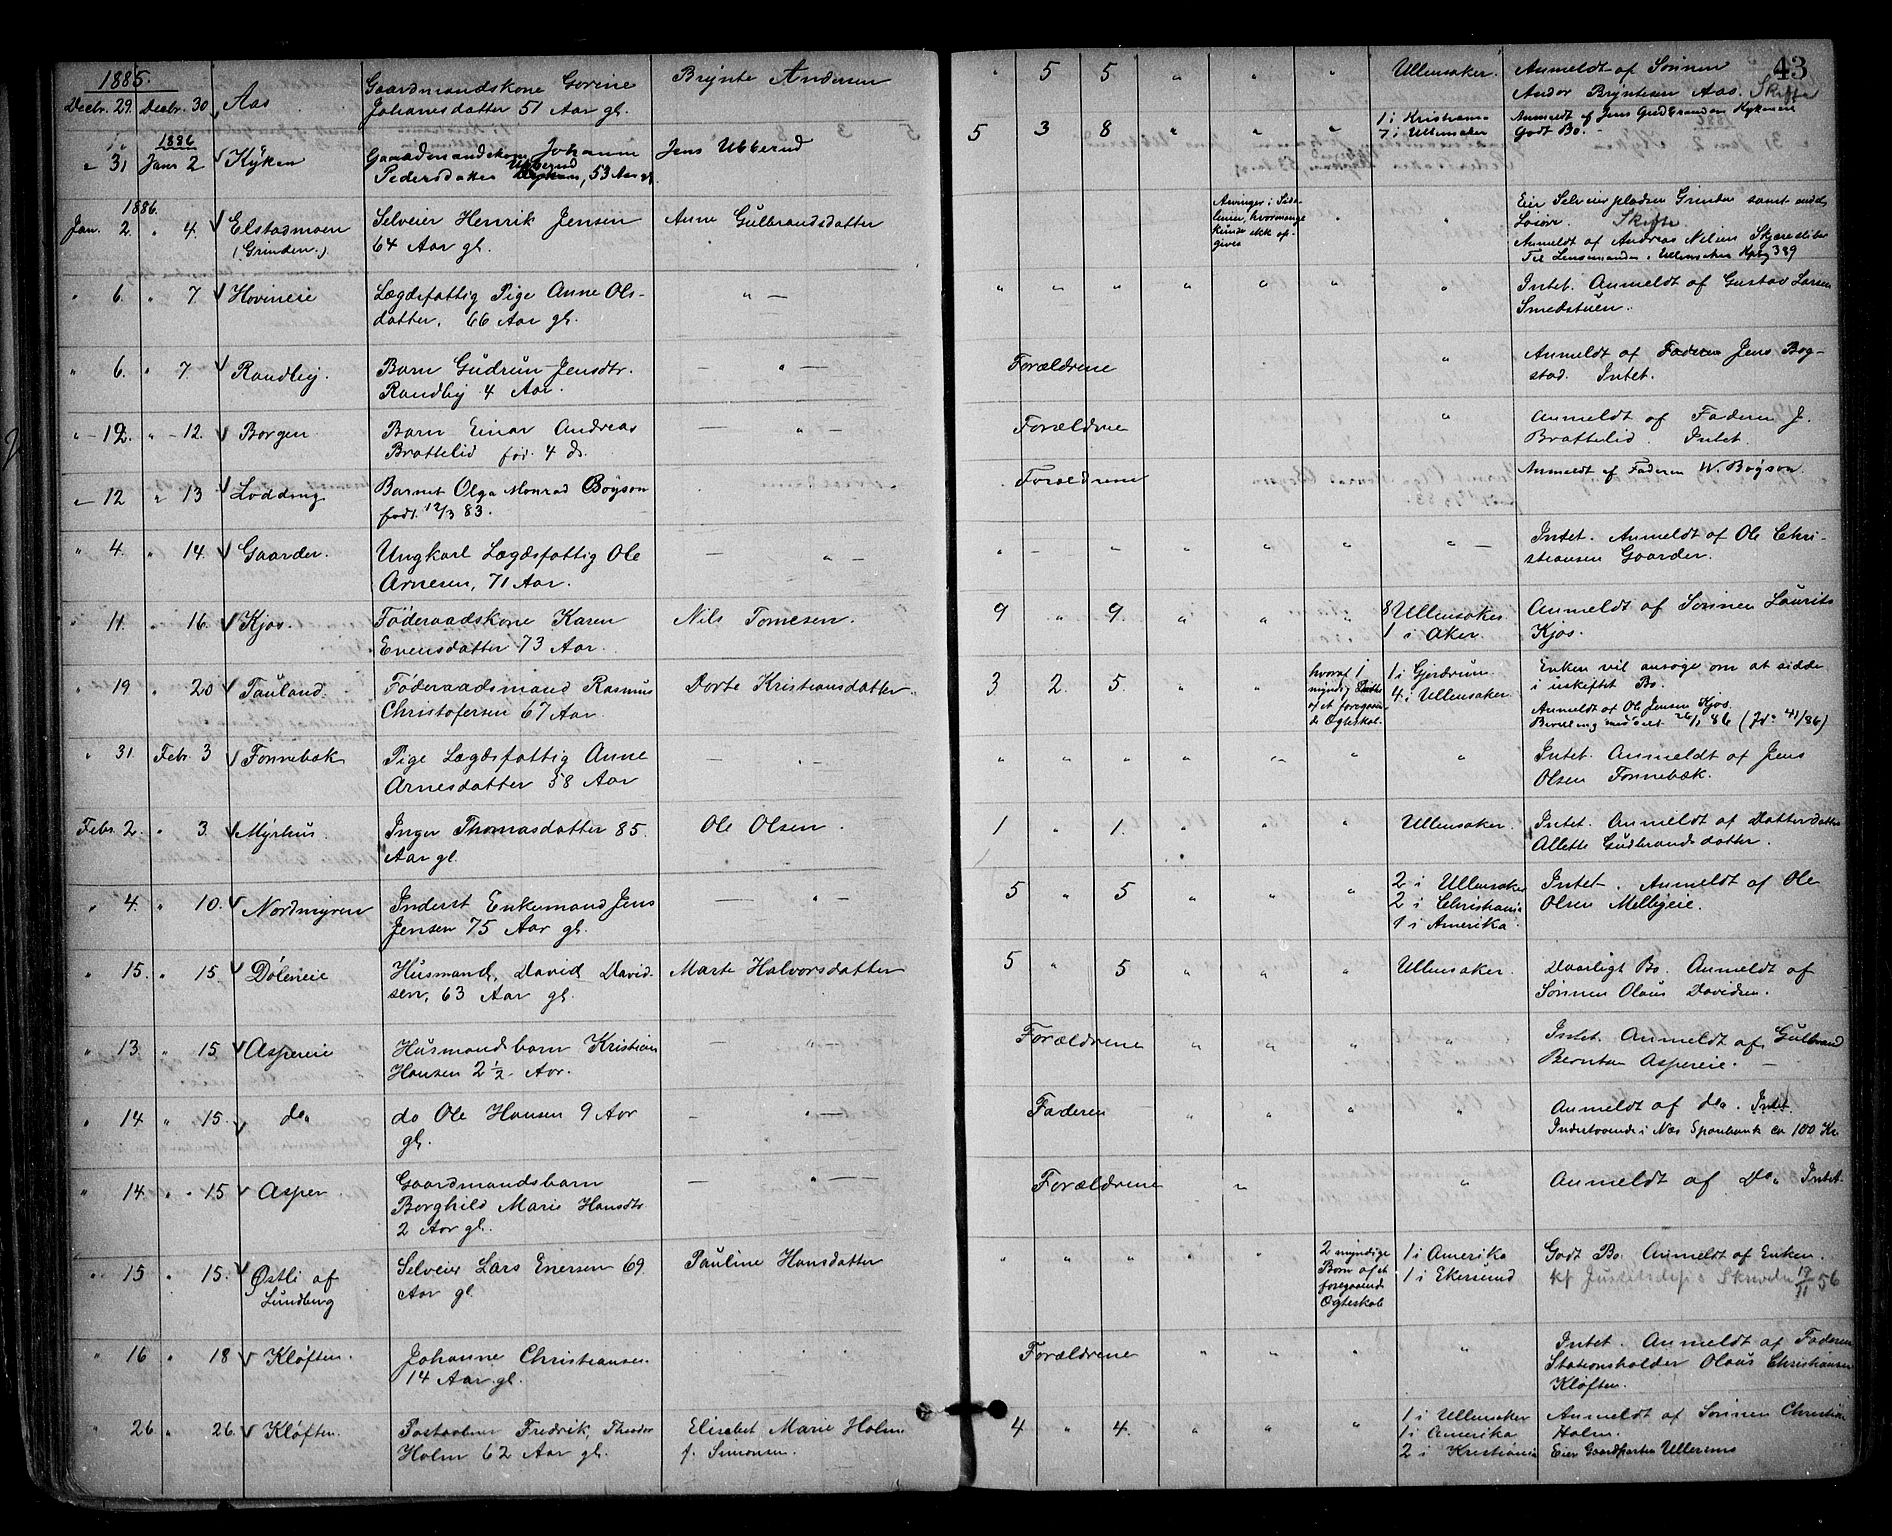 43
1885.
Decbr. 29. Decbr. 30 Aas Gaardmandskone Gorine Brynte Andersen " 5 5 " " " Ullensaker. Anmeldt af Sönnen
Johansdatter 51 Aar gl. Andor Bryntesen Aas. Skifte
1886
" 31 Janr 2 Kyken Gaardmandskone Johanne Jens Ubberud 5 3 8 " " " 1 i Kristiania Anmeldt af Jens
Pedersdatter Ubberud, 53 Aar gl 7 i Ullensaker Godt Bo.
1886.
Jan. 2 " 4. Elstadmoen Selveier Henrik Jensen Anne Gulbrandsdatter Arvinger i " " Eier Selveierpladsen Grinden samt
(Grinden.) 64 Aar gl. hvormange Löiöre. Skifte
kunde ikk op- Anmeldt af Andreas Nilsen
gives Til Lensmanden i Ullensaker 389
" 6. " 7 Hovineie Lægdsfattig Pige Anne Ols- " — " " " " " " " Intet. Anmeldt af Gustav Larsen
datter, 66 Aar gl. Smedstuen.
" 6. " 7. Randby. Barn Gudrun Jensdtr. — " — Forældrene " Anmeldt af Faderen Jens Bog-
Randby 4 Aar. stad. Intet.
" 12. " 12. Borgen Barn Einar Andreas — " — Forældrene " Anmeldt af Faderen J.
Brattelid föd. 4 ds. Brattelid. Intet.
" 12 " 13 Lodding Barnet Olga Monrad Boyson Forældrene Anmeldt af Faderen W. Boyson.
födt. 12/3 83.
" 4. " 14. Gaarder. Ungkarl Lægdsfattig Ole — " — " — " " " " " — Intet. Anmeldt af Ole Chri-
Arnesen, 71 Aar. stiansen Gaarder.
" 11. " 16. Kjos. Föderaadskone Karen Nils Tomesen. 9 " 9. " " " 8 Ullensaker Anmeldt af Sönnen Laurits
Evensdatter 73 Aar. 1 i Aker. Kjos.
" 19 " 20 Tauland. Föderaadsmand Rasmus Dorte Kristiansdatter. 3 2. 5. " " hvoraf 1 1 i Gjerdrum Enken vil ansöge om at sidde
Christofersen 67 Aar. myndig Datter 4. i Ullensaker. i uskiftet Bo.
af et foregaaen- Anmeldt af Ole Jensen Kjos.
de Ægteskab. Bevilling meddelt 26/1 86 (Jr. 41/86)
" 31. Febr. 3 Fonnebæk Pige Lægdsfattig Anne — " — " " " " " " " Intet. Anmeldt af Jens
Arnesdatter 58 Aar Olsen Fonnebæk.
Febr. 2. " 3. Myrhus. Inger Thomasdatter 85. Ole Olsen. 1 " 1. " " " Ullensaker. Intet. Anmeldt af Datterdatter
Aar gl. Allette Gudbrandsdatter.
" 4. " 10. Nordmyren Inderst Enkemand Jens — " — 5 " 5 " " " 2 i Ullensaker Intet. Anmeldt af Ole
Jensen 75 Aar gl. 2 i Christiania Olsen Melbyeie.
1 i Amerika
" 15. " 15. Döleneie Husmand, David David- Marte Halvorsdatter 5 " 5 " " " Ullensaker. Daarligt Bo. Anmeldt af
sen, 63 Aar gl. Sönnen Olaus Davidsen.
" 13. " 15. Aspereie Husmandsbarn Kristian — " — Forældrene " " " " Intet. Anmeldt af Gulbrand
Hansen 2 1/2 Aar. Berntsen Aspereie. —
" 14 " 15. do. do Ole Hansen 9 Aar — " — Faderen " " " " Anmeldt af do. Intet
gl. Indestaaende i Næs Sparebank ca 100 Kr
" 14. " 15 Asper Gaardmandsbarn — " — Forældrene " " Anmeldt af Do. Intet.
Borghild Marie Hansdtr
2 Aar gl.
" 15 " 15. Østli af Selveier Lars Enersen 69 Pauline Hansdatter " " " " " 2 myndige 1 i Amerika Godt Bo. Anmeldt af Enken.
Lundberg Aar gl. Börn af et 1 i Ekersund kp Justitsdep's Skrivelse 19/11 56
foregaaende
Ægteskab
" 16 " 18 Klöften. Johanne Christiansen Forældrene " " " " Intet. Anmeldt af Faderen
14 Aar gl. Stationsholder Olaus Christiansen
Klöften.
" 26. " 26. Klöften. Postaabner Fredrik Theodor Elisabet Marie Holm 4 " 4. " " " 1 i Ullensaker Anmeldt af Sönnen Christian
Holm 62 Aar gl. f. Simonsen. 1 i Amerika Holm.
2 i Kristiania Eier Gaardparten Ullerens